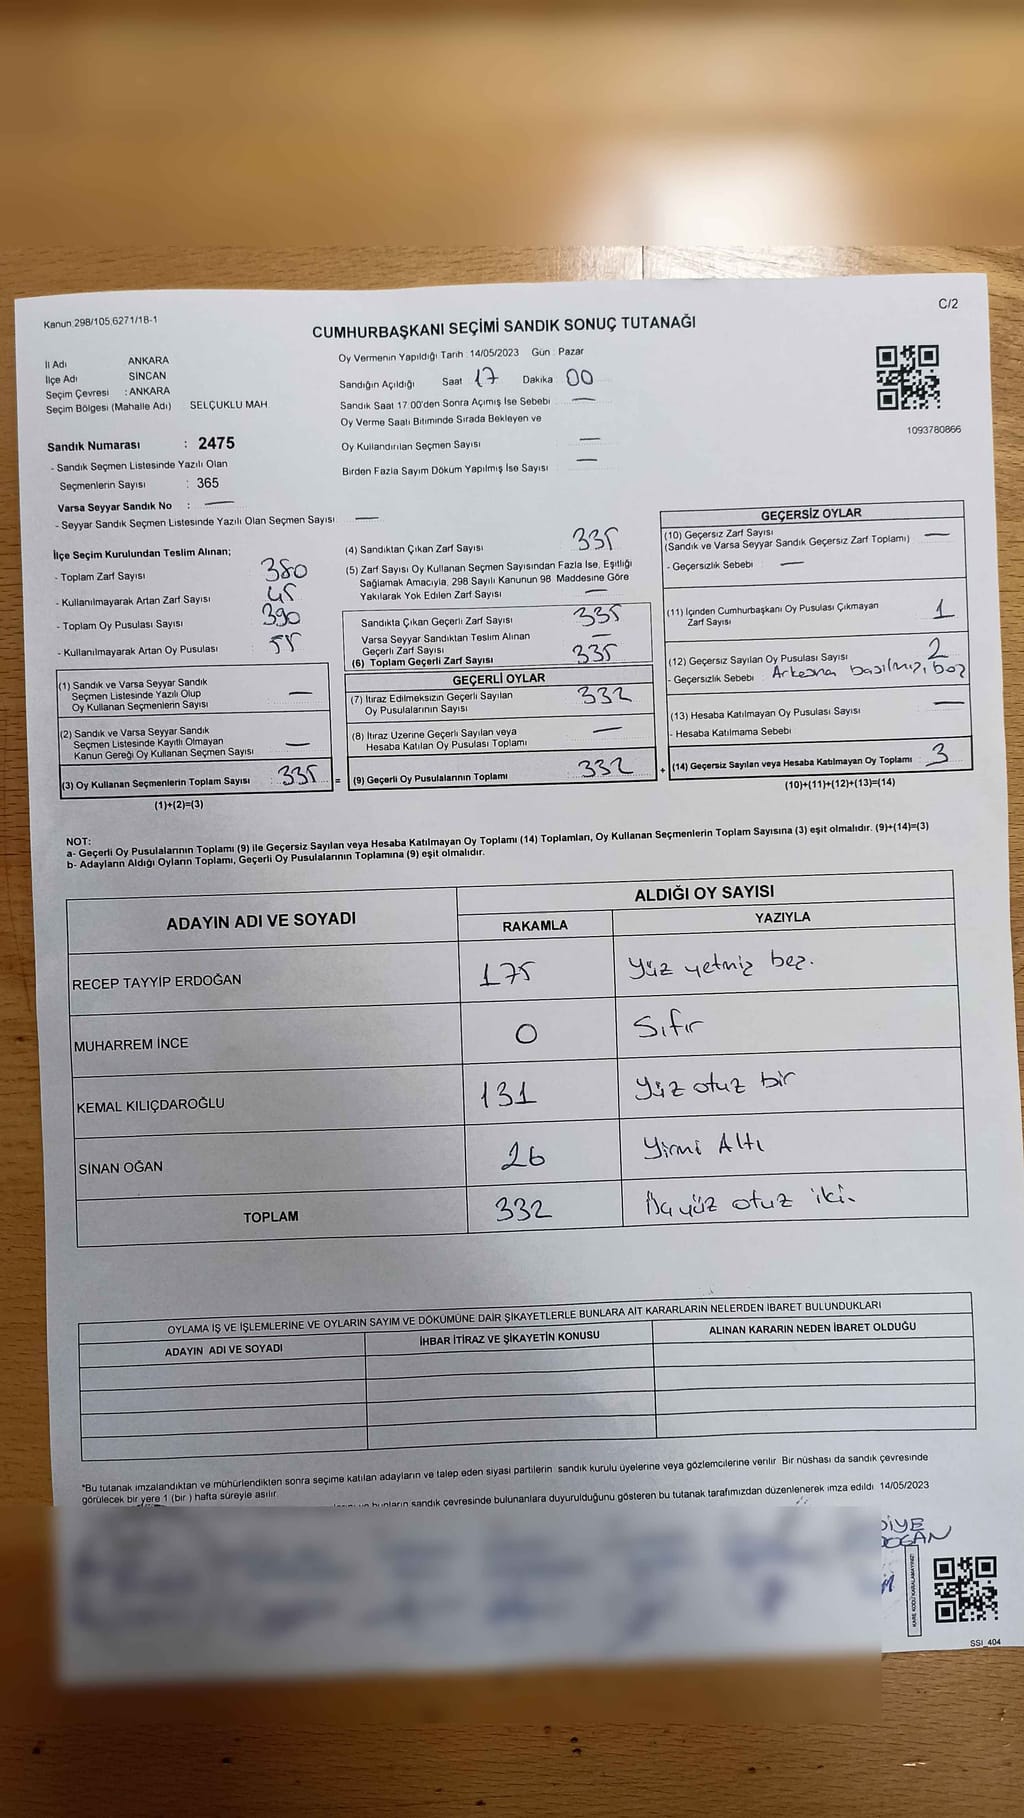 Kanun 298/105,6271/18-1
C/2
CUMHURBAŞKANI SEÇİMİ SANDIK SONUÇ TUTANAĞI
İl Adı ANKARA
İlçe Adı SİNCAN
Seçim Çevresi : ANKARA
Seçim Bölgesi (Mahalle Adı) SELÇUKLU MAH.
Oy Vermenin Yapıldığı Tarih : 14/05/2023 Gün : Pazar
Sandığın Açıldığı Saat 17 Dakika 00
Sandık Saat 17 00'den Sonra Açımış İse Sebebi —
Oy Verme Saati Bitiminde Sırada Bekleyen ve
Oy Kullandırılan Seçmen Sayısı —
Birden Fazla Sayım Döküm Yapılmış İse Sayısı —
1093780866
Sandık Numarası : 2475
- Sandık Seçmen Listesinde Yazılı Olan
Seçmenlerin Sayısı : 365
Varsa Seyyar Sandık No : —
- Seyyar Sandık Seçmen Listesinde Yazılı Olan Seçmen Sayısı —
İlçe Seçim Kurulundan Teslim Alınan;
- Toplam Zarf Sayısı 380
- Kullanılmayarak Artan Zarf Sayısı 45
- Toplam Oy Pusulası Sayısı 390
- Kullanılmayarak Artan Oy Pusulası 55
(1) Sandık ve Varsa Seyyar Sandık
Seçmen Listesinde Yazılı Olup
Oy Kullanan Seçmenlerin Sayısı —
(2) Sandık ve Varsa Seyyar Sandık
Seçmen Listesinde Kayıtlı Olmayan
Kanun Gereği Oy Kullanan Seçmen Sayısı —
(3) Oy Kullanan Seçmenlerin Toplam Sayısı 335 =
(1)+(2)=(3)
(4) Sandıktan Çıkan Zarf Sayısı 335
(5) Zarf Sayısı Oy Kullanan Seçmen Sayısından Fazla İse, Eşitliği
Sağlamak Amacıyla, 298 Sayılı Kanunun 98 Maddesine Göre
Yakılarak Yok Edilen Zarf Sayısı —
Sandıkta Çıkan Geçerli Zarf Sayısı 335
Varsa Seyyar Sandıktan Teslim Alınan
Geçerli Zarf Sayısı —
(6) Toplam Geçerli Zarf Sayısı 335
GEÇERLİ OYLAR
(7) İtiraz Edilmeksizin Geçerli Sayılan
Oy Pusulalarının Sayısı 332
(8) İtiraz Üzerine Geçerli Sayılan veya
Hesaba Katılan Oy Pusulası Toplamı —
(9) Geçerli Oy Pusulalarının Toplamı 332 +
GEÇERSİZ OYLAR
(10) Geçersiz Zarf Sayısı
(Sandık ve Varsa Seyyar Sandık Geçersiz Zarf Toplamı) —
- Geçersizlik Sebebi —
(11) İçinden Cumhurbaşkanı Oy Pusulası Çıkmayan
Zarf Sayısı 1
(12) Geçersiz Sayılan Oy Pusulası Sayısı 2
- Geçersizlik Sebebi Arkasına basılmış, boş
(13) Hesaba Katılmayan Oy Pusulası Sayısı —
- Hesaba Katılmama Sebebi
(14) Geçersiz Sayılan veya Hesaba Katılmayan Oy Toplamı 3
(10)+(11)+(12)+(13)=(14)
NOT:
a- Geçerli Oy Pusulalarının Toplamı (9) ile Geçersiz Sayılan veya Hesaba Katılmayan Oy Toplamı (14) Toplamları, Oy Kullanan Seçmenlerin Toplam Sayısına (3) eşit olmalıdır. (9)+(14)=(3)
b- Adayların Aldığı Oyların Toplamı, Geçerli Oy Pusulalarının Toplamına (9) eşit olmalıdır.
ADAYIN ADI VE SOYADI
ALDIĞI OY SAYISI
RAKAMLA YAZIYLA
RECEP TAYYİP ERDOĞAN 175 Yüz yetmiş beş.
MUHARREM İNCE 0 Sıfır
KEMAL KILIÇDAROĞLU 131 Yüz otuz bir
SİNAN OĞAN 26 Yirmi Altı
TOPLAM 332 Üç yüz otuz iki.
OYLAMA İŞ VE İŞLEMLERİNE VE OYLARIN SAYIM VE DÖKÜMÜNE DAİR ŞİKAYETLERLE BUNLARA AİT KARARLARIN NELERDEN İBARET BULUNDUKLARI
ADAYIN ADI VE SOYADI İHBAR İTİRAZ VE ŞİKAYETİN KONUSU ALINAN KARARIN NEDEN İBARET OLDUĞU
*Bu tutanak imzalandıktan ve mühürlendikten sonra seçime katılan adayların ve talep eden siyasi partilerin sandık kurulu üyelerine veya gözlemcilerine verilir Bir nüshası da sandık çevresinde
görülecek bir yere 1 (bir ) hafta süreyle asılır.
bunların sandık çevresinde bulunanlara duyurulduğunu gösteren bu tutanak tarafımızdan düzenlenerek imza edildi 14/05/2023
DİYE
DOĞAN
KARE KODU KARALAMAYINIZ!
SSI_404